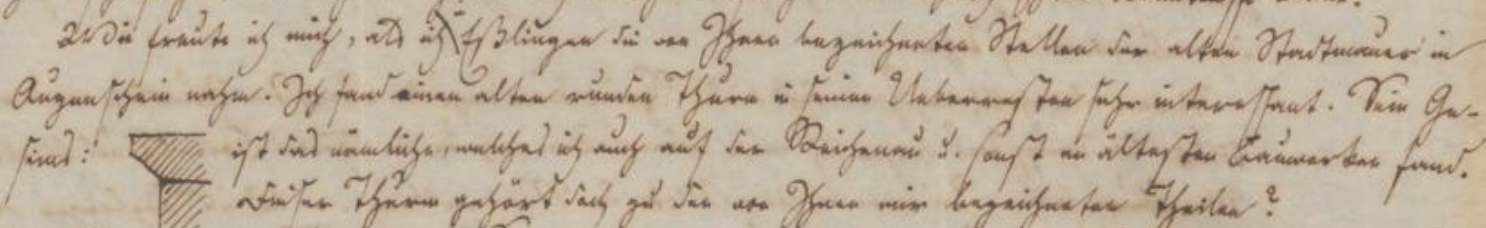 Wie freute ich mich, als ich in Eßlingen die von Ihnen bezeichneten Stellen der alten Stadtmauer in
Augenschein nahm. Ich fand einen alten runden Thurn in seinen Ueberresten sehr interessant. Sein Ge-
sims: ist das nämliche, welches ich auch auf der Reichenau u. sonst an ältesten Bauwerken fand.
Dieser Thurm gehört doch zu den von Ihnen mir bezeichneten Theilen?